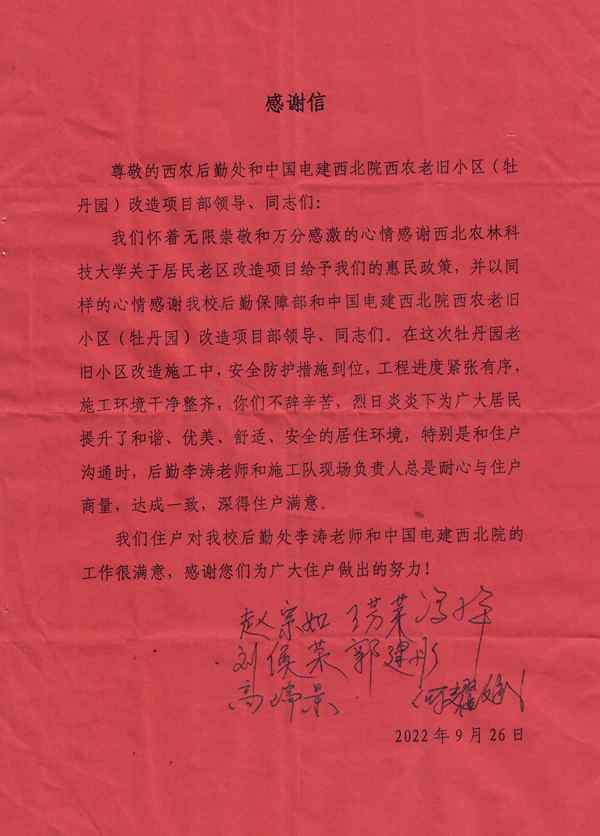 感谢信
尊敬的西农后勤处和中国电建西北院西农老旧小区（牡
丹园）改造项目部领导、同志们：
我们怀着无限崇敬和万分感激的心情感谢西北农林科
技大学关于居民老区改造项目给予我们的惠民政策，并以同
样的心情感谢我校后勤保障部和中国电建西北院西农老旧
小区（牡丹园）改造项目部领导、同志们。在这次牡丹园老
旧小区改造施工中，安全防护措施到位，工程进度紧张有序，
施工环境干净整齐，你们不辞辛苦，烈日炎炎下为广大居民
提升了和谐、优美、舒适、安全的居住环境，特别是和住户
沟通时，后勤李涛老师和施工队现场负责人总是耐心与住户
商量，达成一致，深得住户满意。
我们住户对我校后勤处李涛老师和中国电建西北院的
工作很满意，感谢您们为广大住户做出的努力！
赵宗如
刘俊荣 郭建彤
2022 年 9 月 26 日